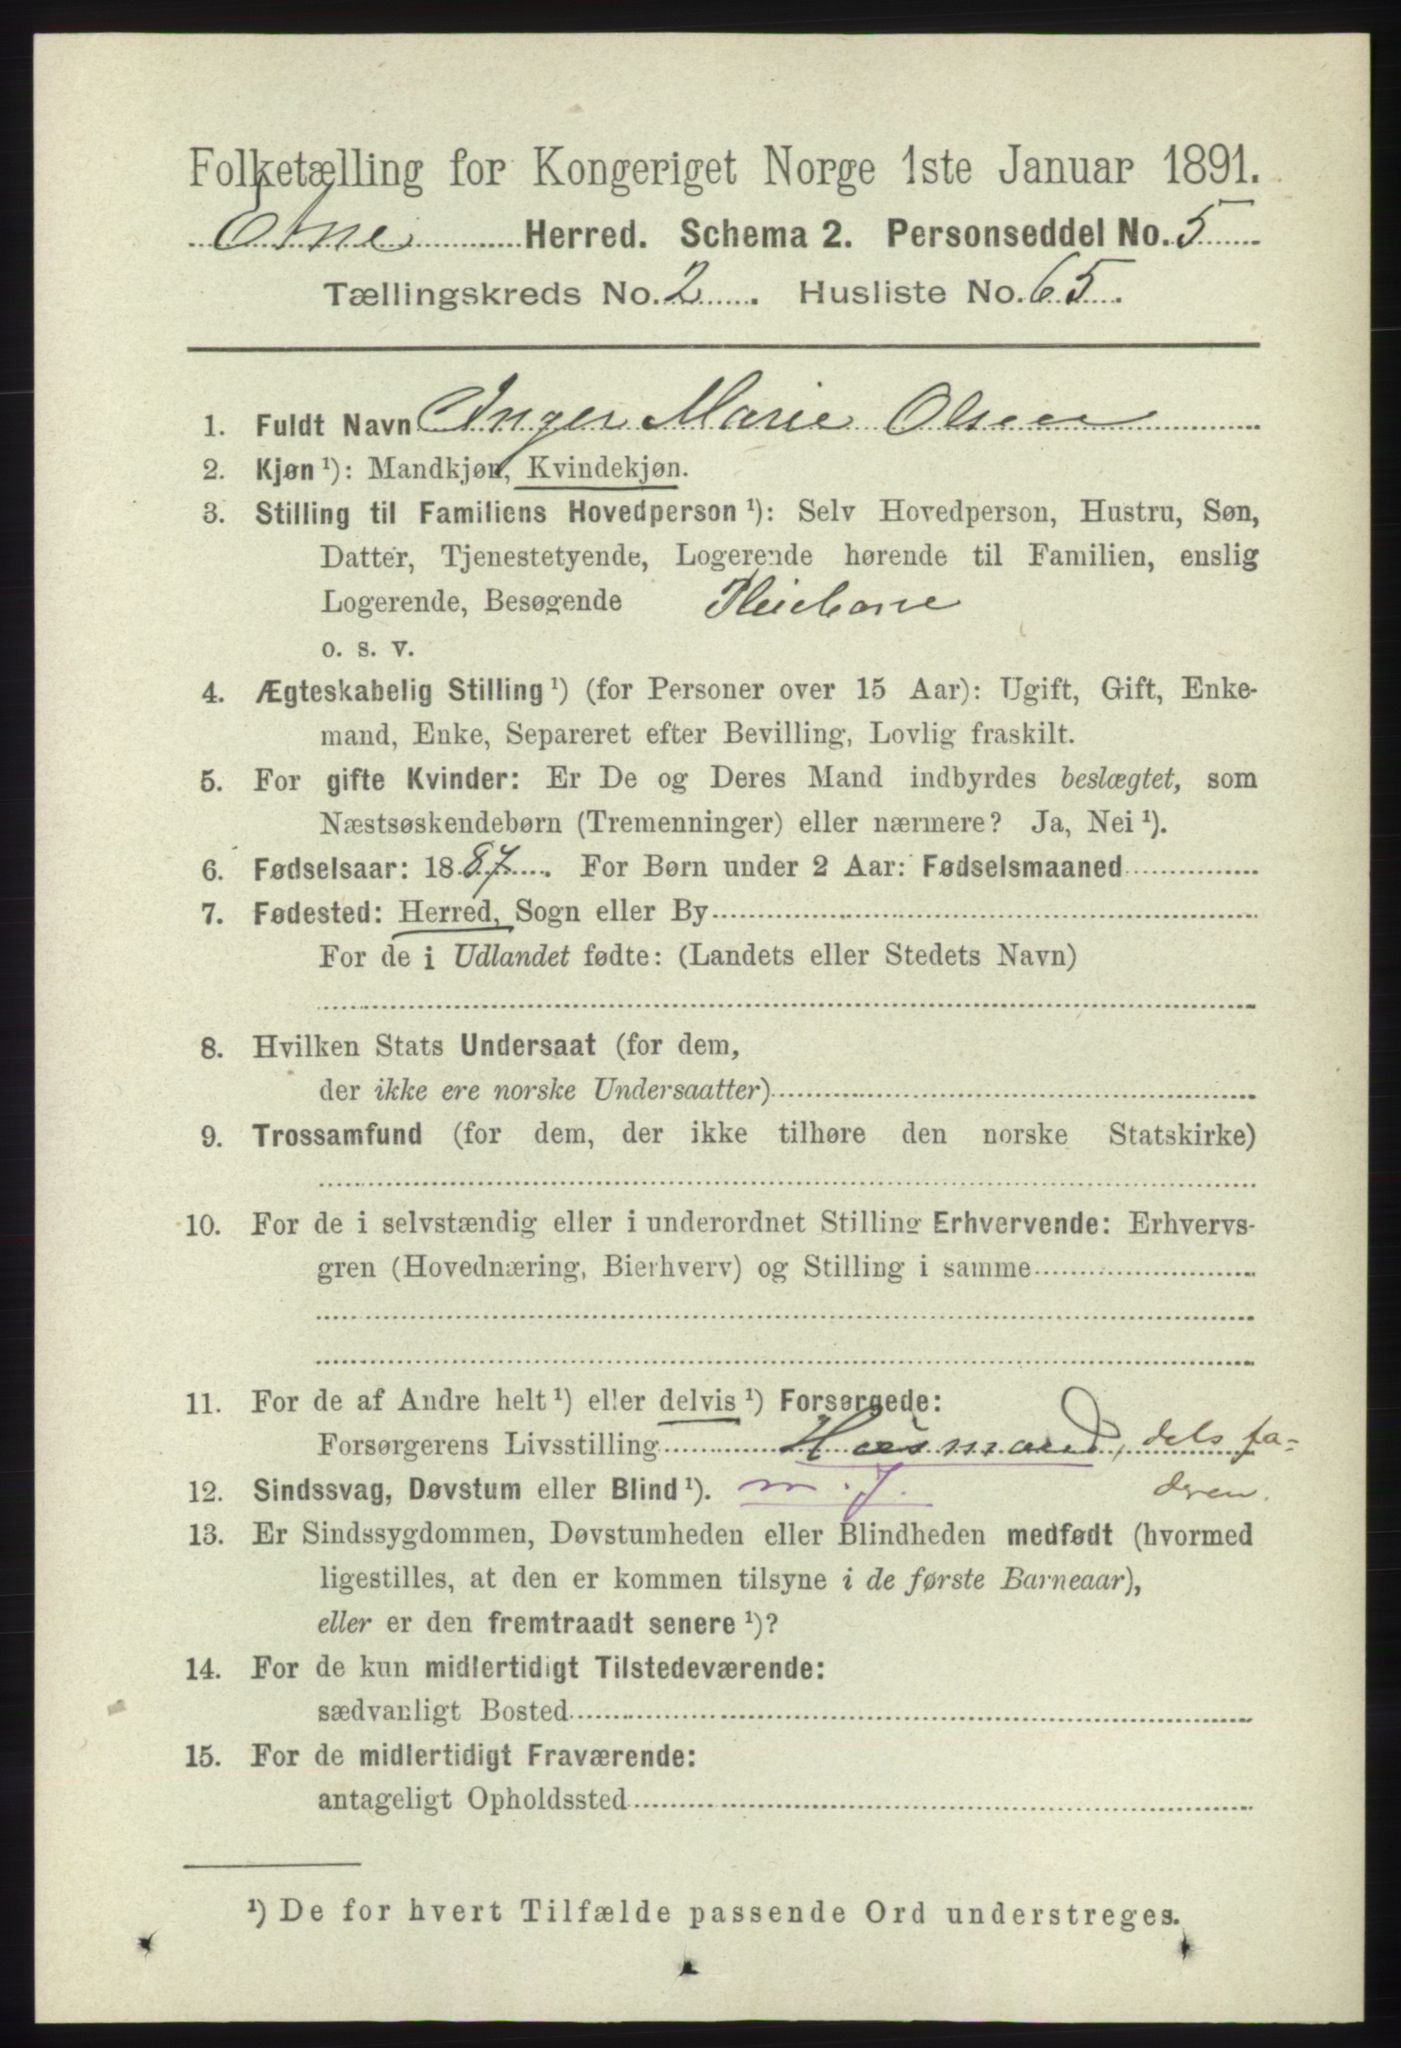 Folketælling for Kongeriget Norge 1ste Januar 1891.
Etne Herred. Schema 2. Personseddel No. 5
Tællingskreds No. 2. Husliste No. 65.
1. Fuldt Navn Inger Marie Olsen
2. Kjøn ¹): Mandkjøn, Kvindekjøn.
3. Stilling til Familiens Hovedperson ¹): Selv Hovedperson, Hustru, Søn,
Datter, Tjenestetyende, Logerende hørende til Familien, enslig
Logerende, Besøgende Pleiebarn
o. s. v.
4. Ægteskabelig Stilling ¹) (for Personer over 15 Aar): Ugift, Gift, Enke-
mand, Enke, Separeret efter Bevilling, Lovlig fraskilt.
5. For gifte Kvinder: Er De og Deres Mand indbyrdes beslægtet, som
Næstsøskendebørn (Tremenninger) eller nærmere? Ja, Nei ¹).
6. Fødselsaar: 1887. For Børn under 2 Aar: Fødselsmaaned
7. Fødested: Herred, Sogn eller By
For de i Udlandet fødte: (Landets eller Stedets Navn)
8. Hvilken Stats Undersaat (for dem,
der ikke ere norske Undersaatter)
9. Trossamfund (for dem, der ikke tilhøre den norske Statskirke)
10. For de i selvstændig eller i underordnet Stilling Erhvervende: Erhvervs-
gren (Hovednæring, Bierhverv) og Stilling i samme
11. For de af Andre helt ¹) eller delvis ¹) Forsørgede:
Forsørgerens Livsstilling Husmand, dels fa-
12. Sindssvag, Døvstum eller Blind ¹). m. J. deren.
13. Er Sindssygdommen, Døvstumheden eller Blindheden medfødt (hvormed
ligestilles, at den er kommen tilsyne i de første Barneaar),
eller er den fremtraadt senere ¹)?
14. For de kun midlertidigt Tilstedeværende:
sædvanligt Bosted
15. For de midlertidigt Fraværende:
antageligt Opholdssted
¹) De for hvert Tilfælde passende Ord understreges.